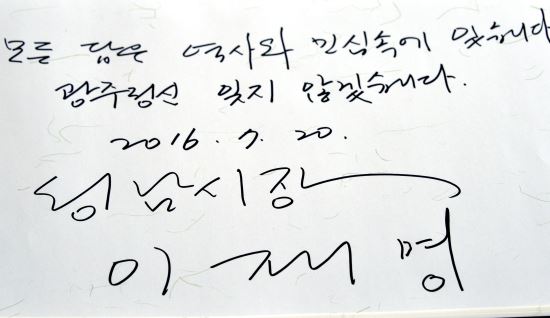 모든 답은 역사와 민심속에 있습니다
광주정신 잊지 않겠습니다.
2016. 7. 20.
성남시장
이재명